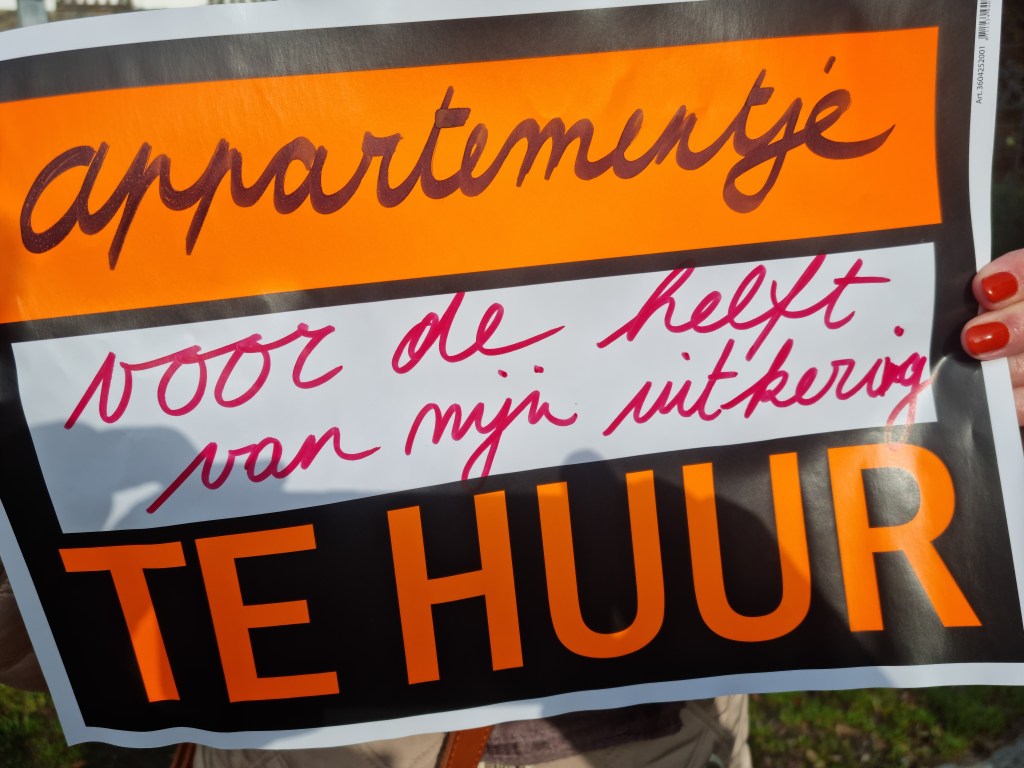 Art.3604252001
appartementje
voor de helft
van mijn uitkering
TE HUUR